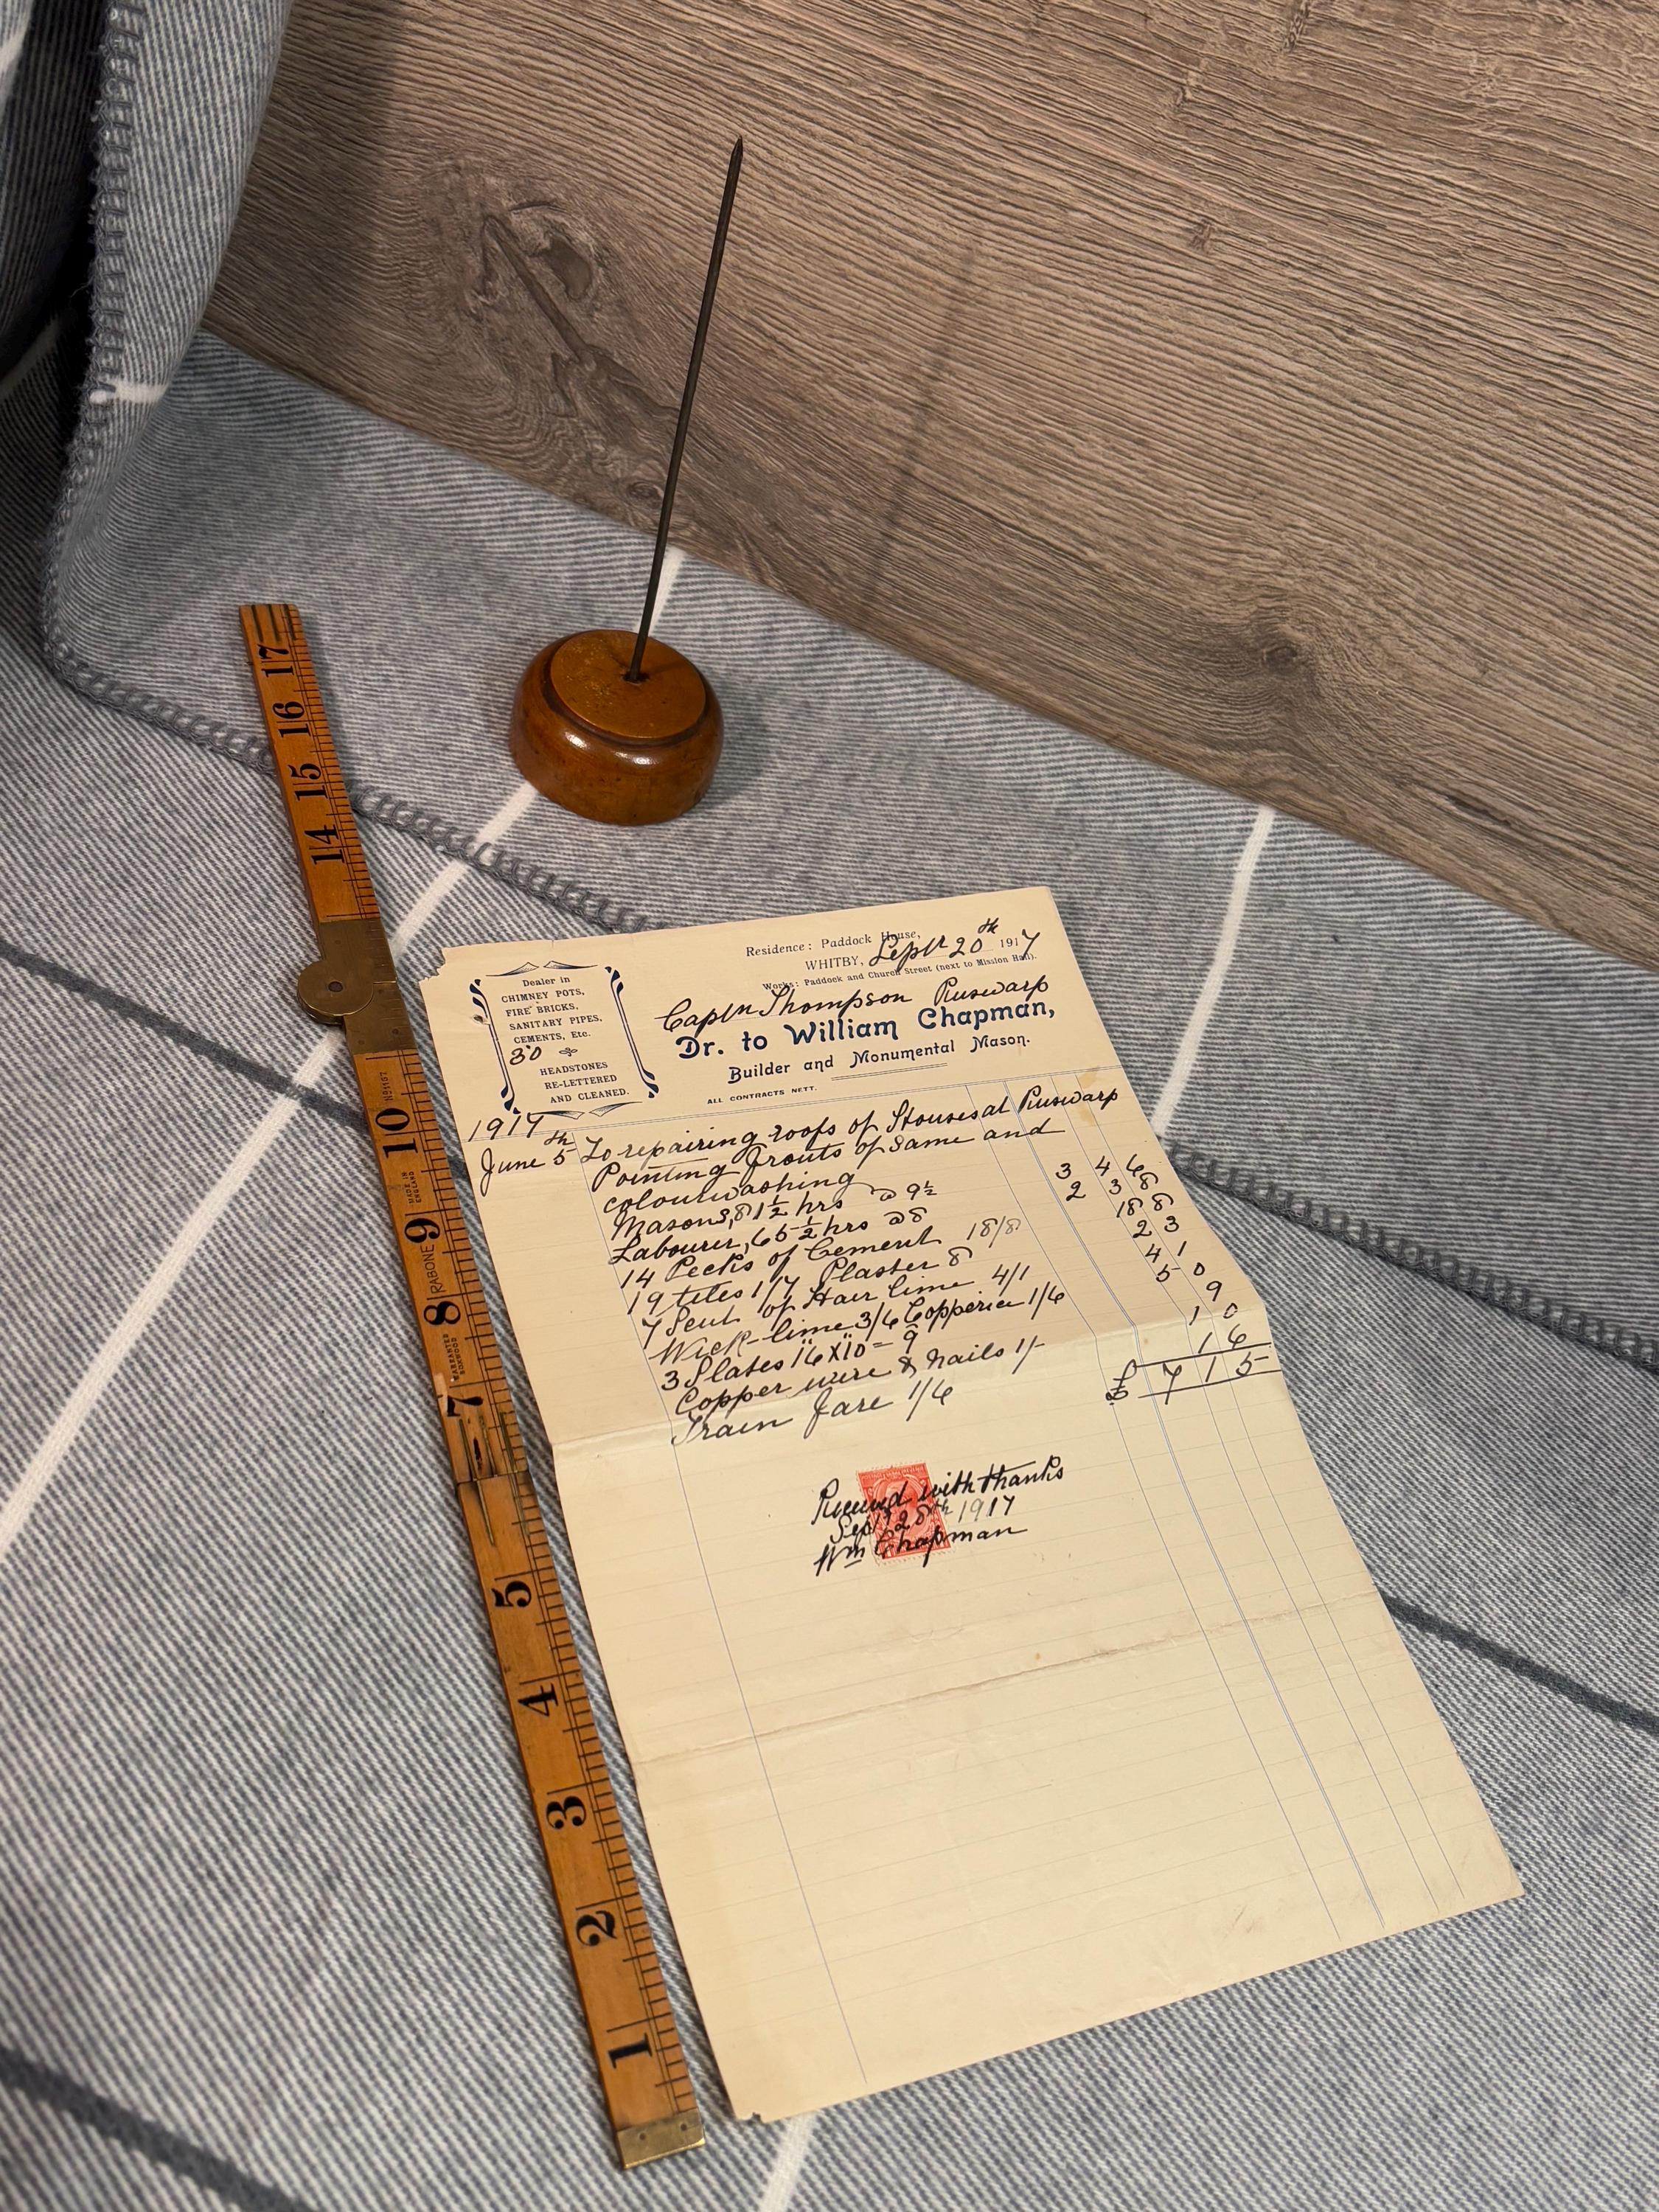 Residence: Paddock House,
WHITBY, Sept 20th 1917
Works: Paddock and Church Street (next to Mission Hall).
Dealer in
CHIMNEY POTS,
FIRE BRICKS,
SANITARY PIPES,
CEMENTS, Etc.
30
HEADSTONES
RE-LETTERED
AND CLEANED.
Captn Thompson Ruswarp
Dr. to William Chapman,
Builder and Monumental Mason.
ALL CONTRACTS NETT.
1917
June 5th To repairing roofs of Houses at Ruswarp
Pointing fronts of Same and
colourwashing
Masons, 81½ hrs @ 9½ 3 4 6
Labourer, 65½ hrs @ 8 2 3 8
14 Pecks of Cement 18/8 18 8
19 tiles 1/7 Plaster 8 2 3
7 of Hair lime 4/1 4 1
lime 3/6 1/6 5 0
3 Slates 16"x10" = 9 9
Copper wire & Nails 1/- 1 0
Train fare 1/6 1 6
£ 7 1 5
Received with thanks
Sept 28th 1917
Wm Chapman
17
16
15
14
No 1167
10
MADE IN
ENGLAND
9
RABONE
8
WARRANTED
BOXWOOD
7
5
4
3
2
1